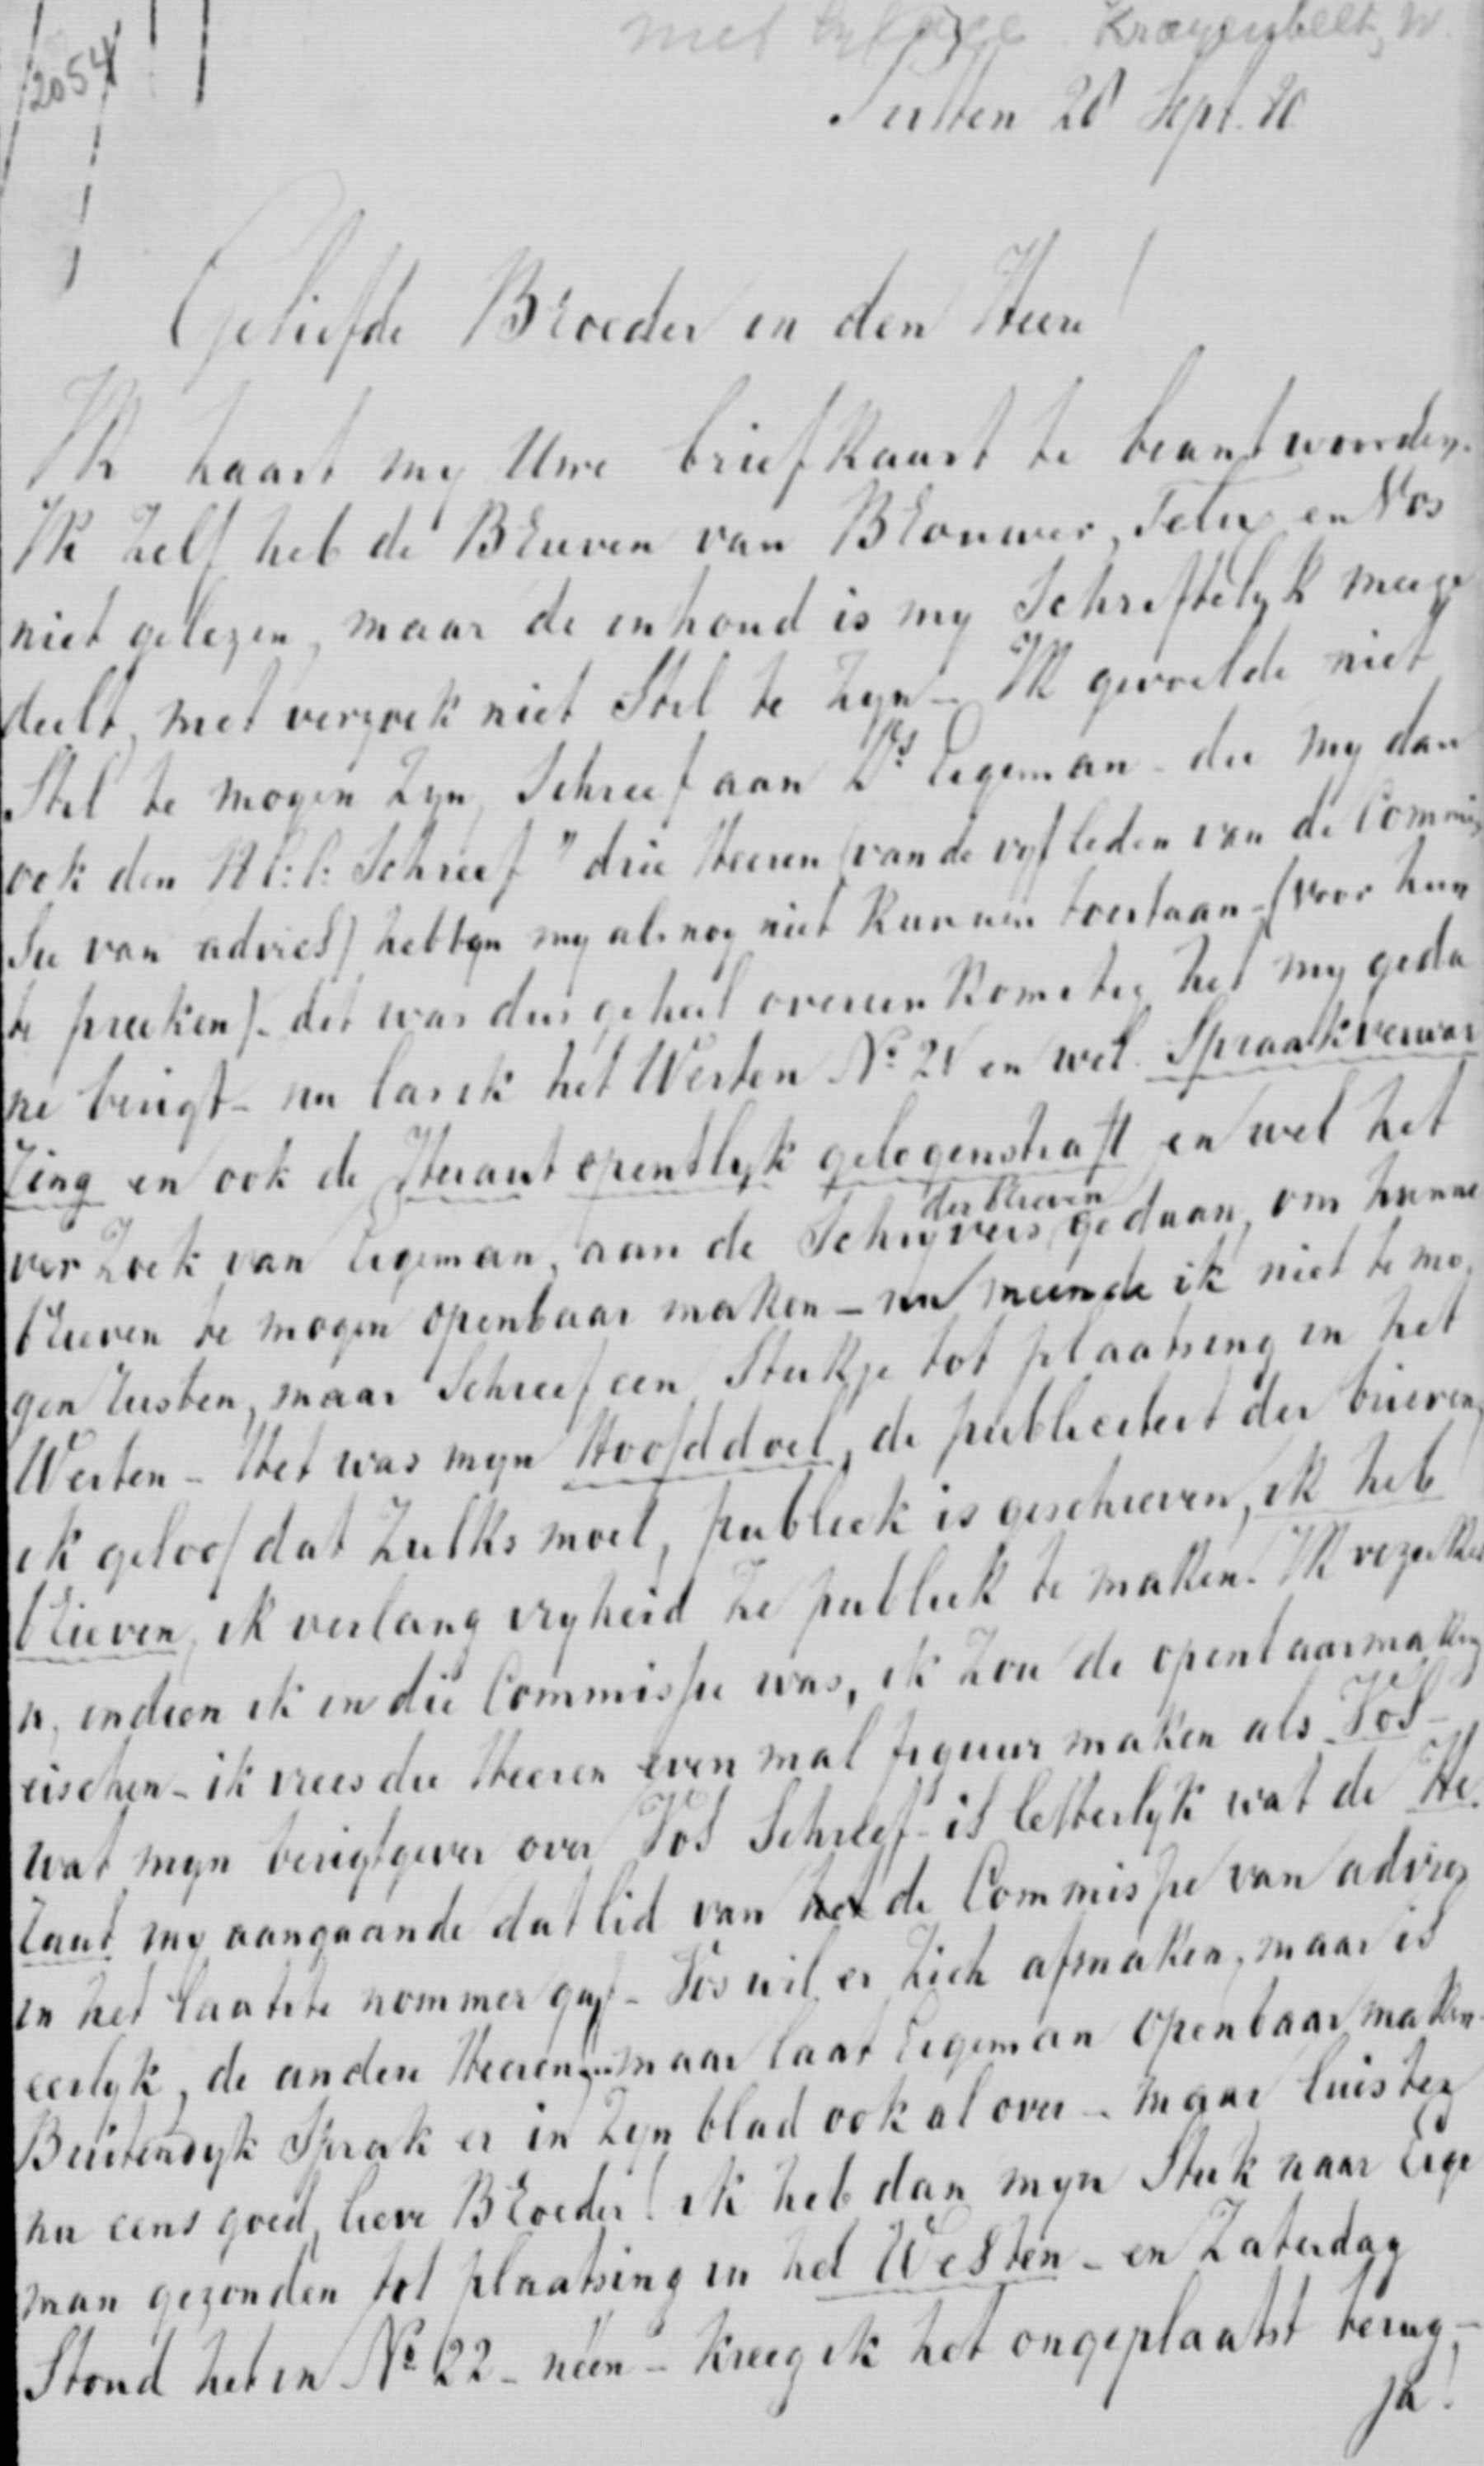 met bylage Krayenbelt, W.
2054
Putten 20 Sept. 80
Geliefde Broeder in den Heere!
Ik haast my Uwe briefkaart te beantwoorden.
Ik zelf heb de Brieven van Brouwer, Felix en Vos
niet gelezen, maar de inhoud is my Schriftelyk meege
deelt, met verzoek niet Stil te zyn - Ik gevoelde niet
Stil te mogen zyn, Schreef aan Ds Eigeman - die my dan
ook den Schreef "drie Heeren (van de vyf leden van de Commis
sie van advies) hebben my als nog niet kunnen toestaan - (voor hun
te preeken) - dit was dus geheel overeenkomstig het my geda
ne berigt - nu las ik het Westen No 21 en wel Spraakverwar
ring en ook de Heraut opentlyk gelogenstraft en wel het
verzoek van Eigeman, aan de Schryvers der brieven gedaan, om hunne
brieven te mogen openbaar maken - nu meende ik niet te mo
gen rusten, maar Schreef een Stukje tot plaatsing in het
Westen - Het was myn Hoofddoel, de publiciteit der brieven,
ik geloof dat zulks moet, publiek is geschreven, ik heb
brieven, ik verlang vryheid ze publiek te maken. Ik verzeker
u, indien ik in die Commissie was, ik zou de openbaarmaking
eischen - ik vrees die Heeren even mal figuur maken als Vos -
wat myn berigtgever over Vos Schreef - is letterlyk wat de He
raut my aangaande dat lid van de Commissie van advies
in het laatste nommer gaf - Vos wil er zich afmaken, maar is
eerlyk, de andere Heeren maar laat Eigeman openbaar maken.
Buitendyk Sprak er in zyn blad ook al over - maar luister
nu eens goed, lieve Broeder! ik heb dan myn Stuk naar Eige
man gezonden tot plaatsing in het Westen - en Zaterdag
Stond het in No 22 - neen - kreeg ik het ongeplaatst terug -
ja!